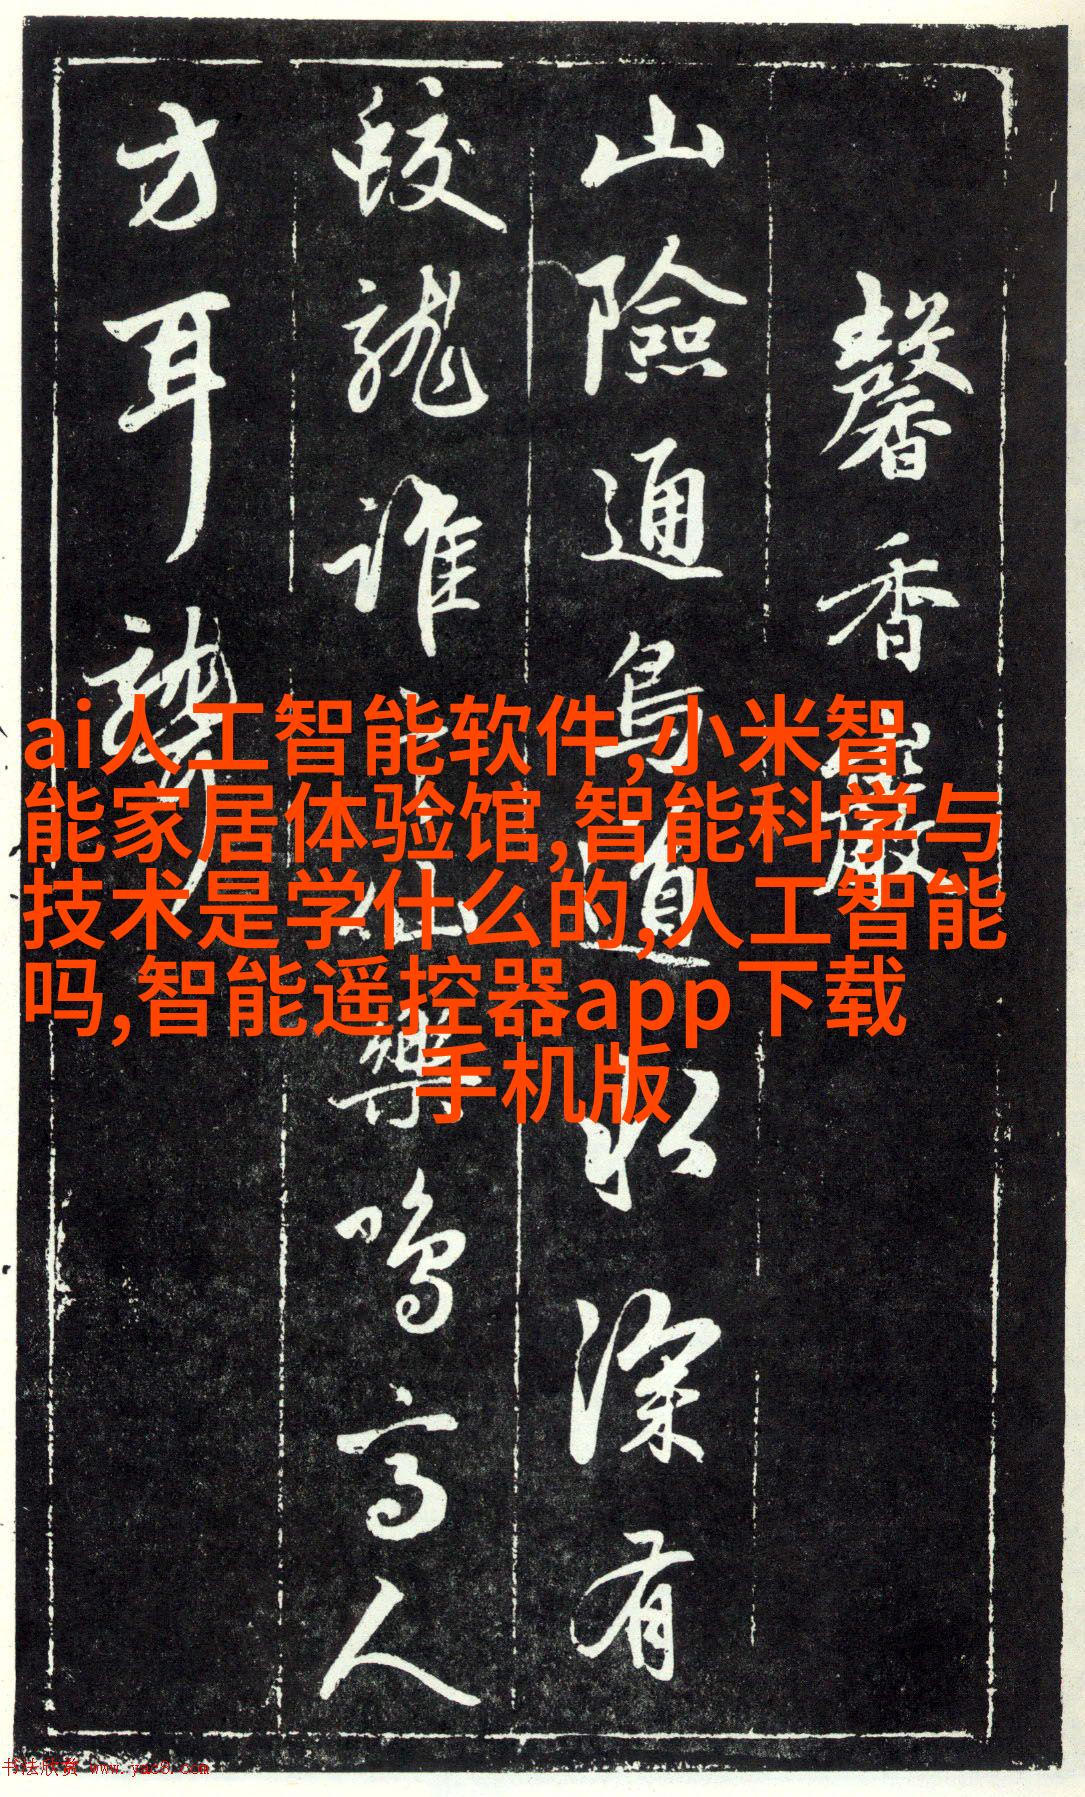 馨香巖
山險通鳥道松深有
蛟龍誰樂鳴高人
方耳
ai人工智能软件,小米智
能家居体验馆,智能科学与
技术是学什么的,人工智能
吗,智能遥控器app下载
手机版
书法欣赏 www.yac8.com